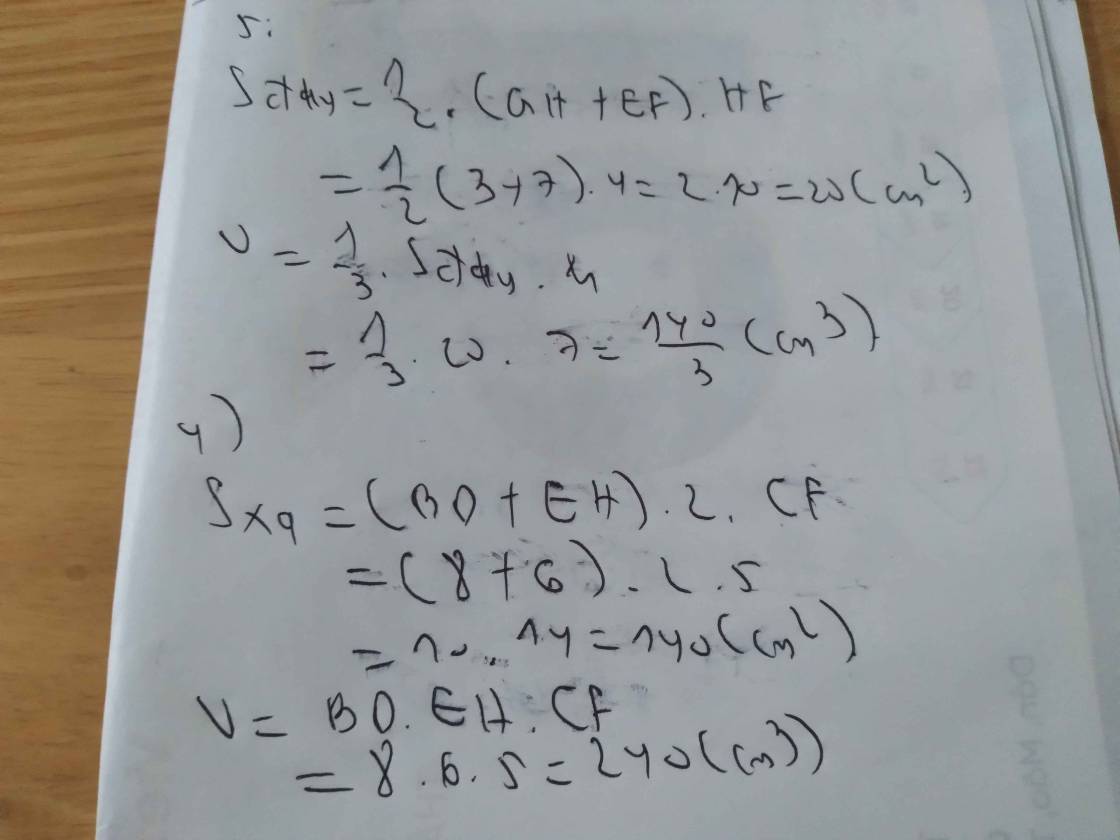 5:
S₫đáy = 1/2 . (GH + EF). HF
= 1/2 (3+7). 4 = 2.10 = 20 (cm²)
V = 1/3 . S₫đáy . h
= 1/3 . 20 . 7 = 140/3 (cm³)
4)
Sxq = (BD + EH). 2. CF
= (8 + 6) . 2 . 5
= 10 . 14 = 140 (cm²)
V = BD. EH. CF
= 8 . 6. 5 = 240 (cm³)